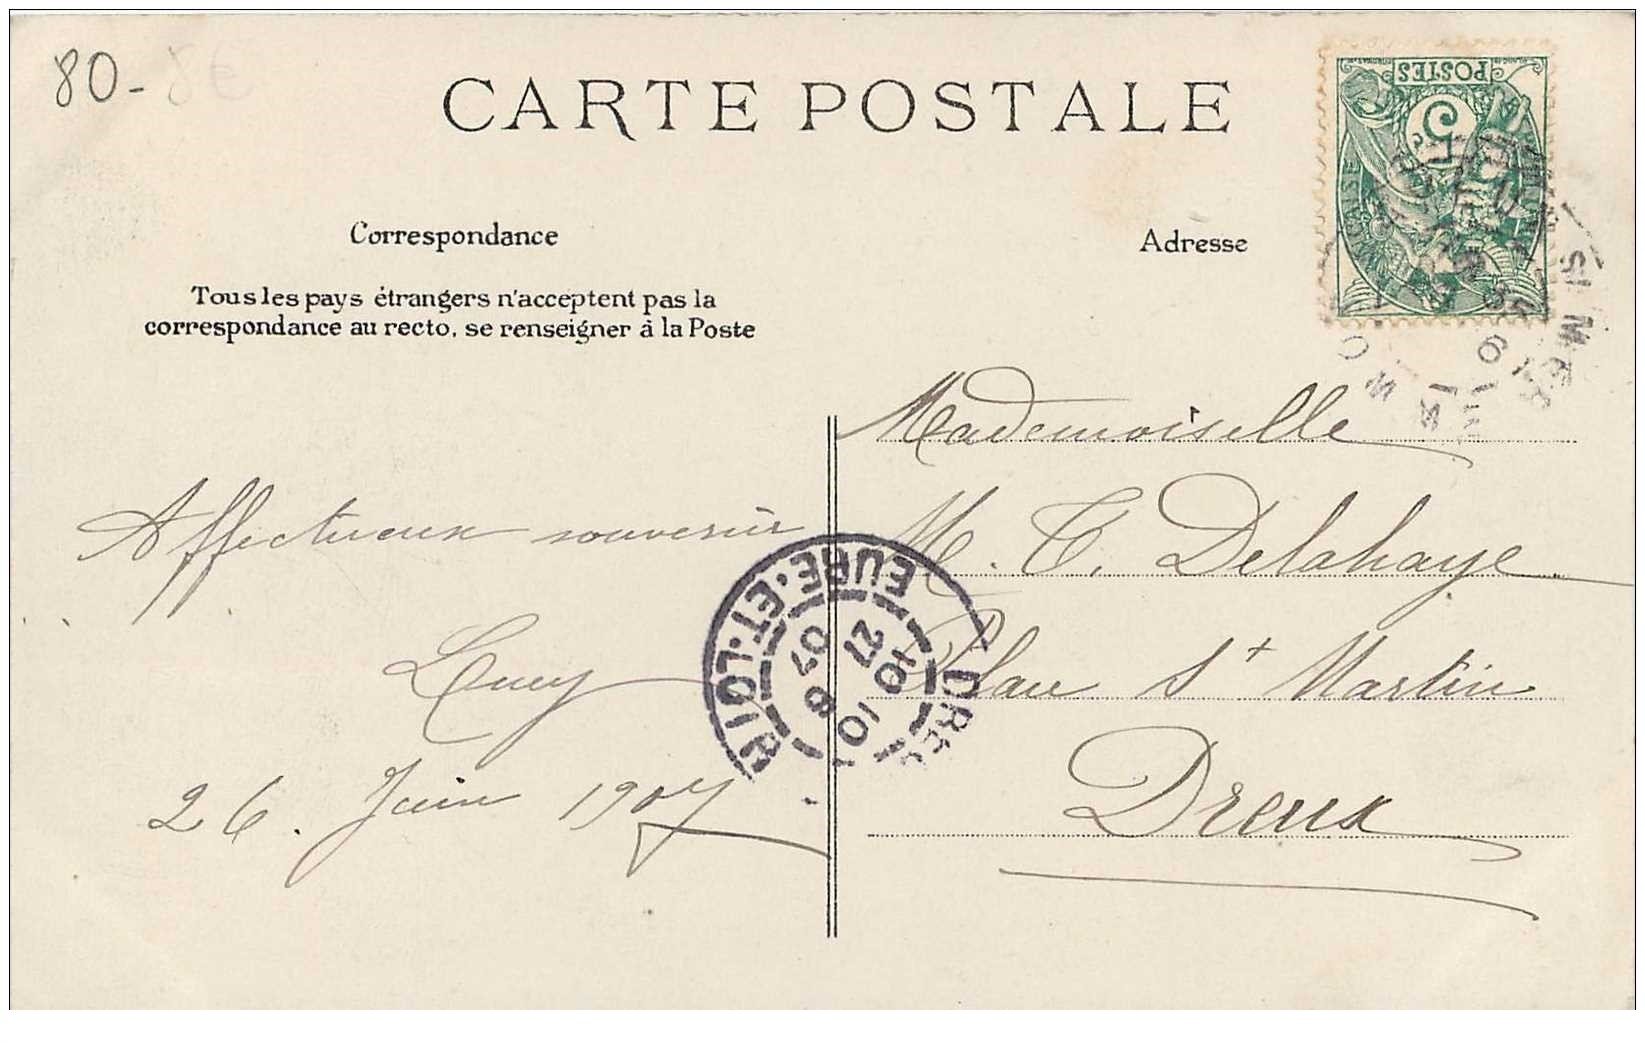 80-8€
CARTE POSTALE
POSTES
5
Correspondance
Adresse
Tous les pays étrangers n'acceptent pas la
correspondance au recto, se renseigner à la Poste
Affectueux souvenir
Lucy
26. Juin 1907
Mademoiselle
M. T. Delahaye
Plan St Martin
Dreux
EURE-ET-LOIR
10 10
27 6
07